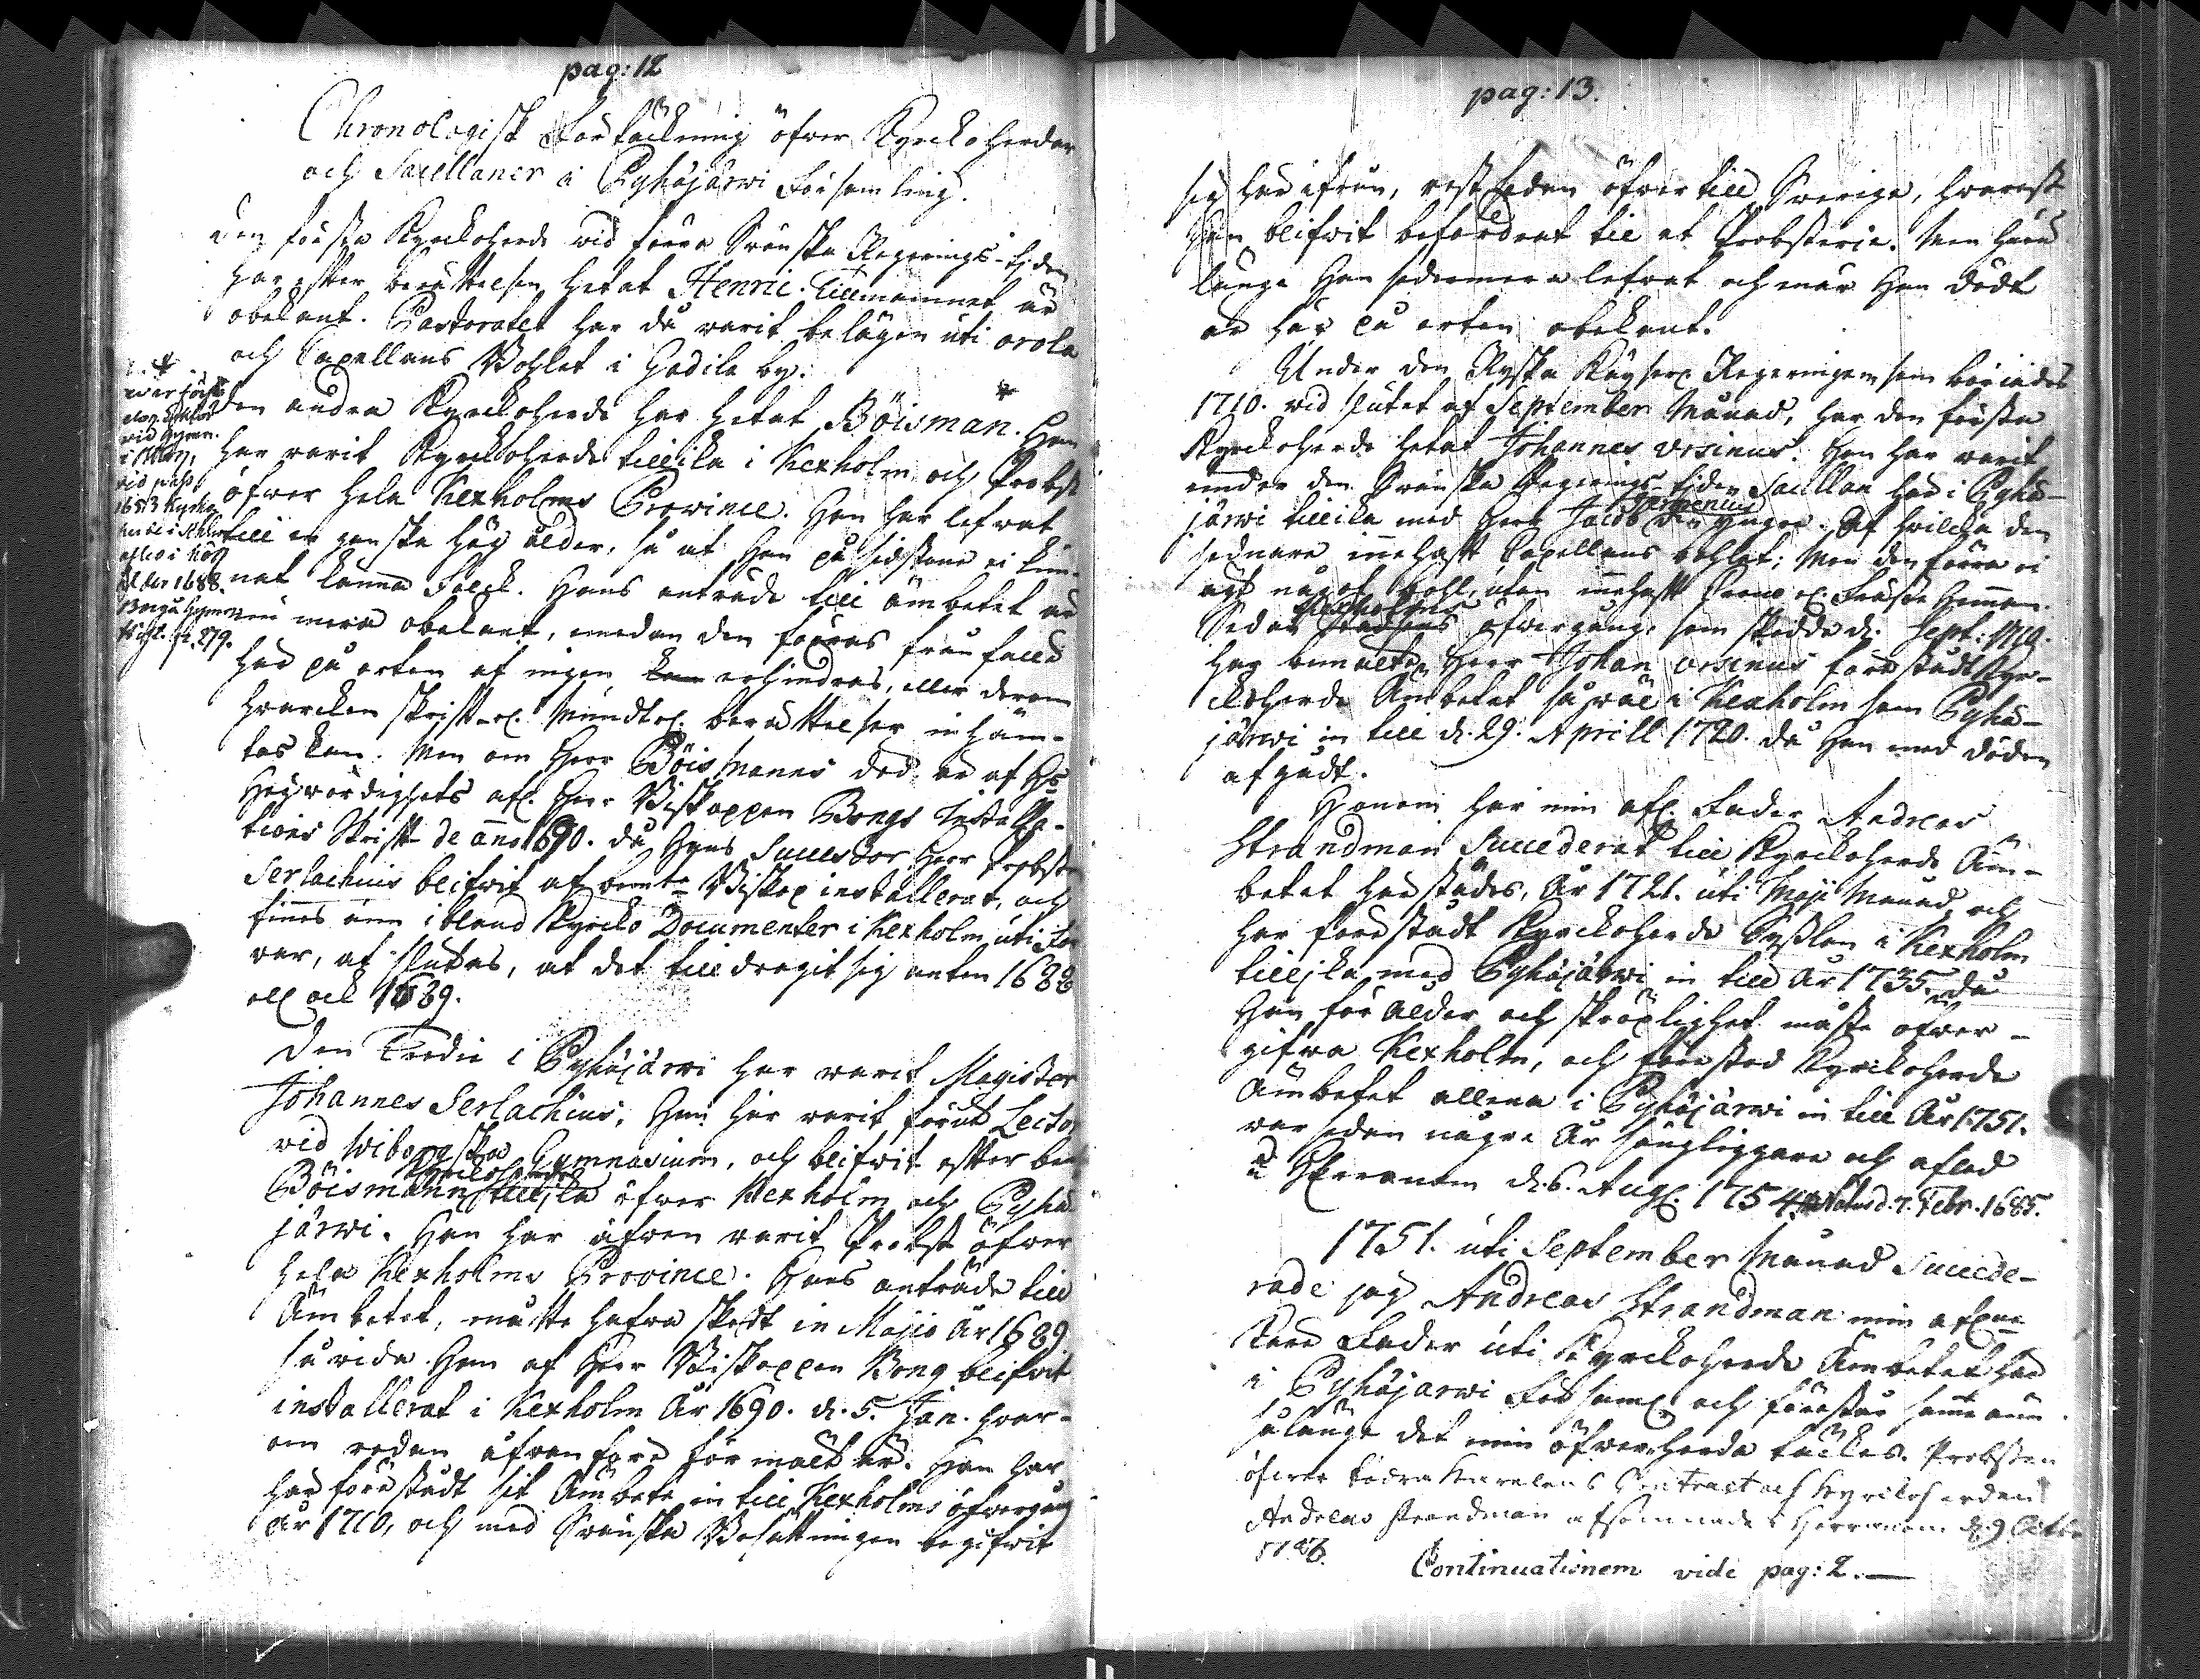 pag: 12
Chronologisk Förtäckning öfwer Kyrckoherdar
och Sacellaner i Pyhäjärwi Församling.
Den första Kyrckoherde wid förra Swänska Regerings-tiden
har efter berättelsen hetat Henric. Tillnamnet är
obekant. Pastoratet har då warit belägen uti orola
och Capellans Bohlet i Gadila by.
Den andra Kyrckoherde har hetat Böisman. * Han
har warit Kyrckoherde tillika i Kexholm och Probst
öfwer hela Kexholms Province. Han har lefwat
till en ganska hög ålder, så at Han på sidstone ei kun-
nat känna Folck. Hans anträde till ämbetet är
nu mera obekant, emedan den förras från fälle
här på orten af ingen erhindras, eller derom
hwarcken skriftel. Mundtel. berättelser inhäm-
tas kan. Men om Herr Böismans död, är af Hs
Högwördighets afl. Herr Biskoppen Bongs Installa-
tions Skrift de anno 1690. då Hans Successor Herr Probsten
Serlachius blifwit af bemte Biskop installerat, och
finnes ännu ibland Kyrcko Documenter i Kexholm uti
war, at slutas, at det tilldragit sig anten 1688
ell ock 1689.
Den Tredie i Pyhäjärwi har warit Magister
Johannes Serlachius, Han har warit förut Lector
wid Wiborgska Gymnasium, och blifwit efter bem
Böismann Kyrckoherde tillika öfwer Kexholm och Pyhä
järwi. Han har äfwen warit Probst öfwer
hela Kexholms Province. Hans anträde till
Ämbetet, måtte hafwa skedt in Majio År 1689
så wida Han af Herr Biskoppen Bong blifwit
installerat i Kexholm År 1690. d. 5. Jan. hwar-
om redan åfwanföre förmält är. Han har
här förestådt sit Ämbete in till Kexholms öfwergång
År 1710, och med Swänska Besättningen begifwit
*
wid Gymn.
i
wid pass
1653 Kyrko
herde i
afled i Kex
1688.
Borgå Gymn.
p. 279.
pag: 13.
sig härifrån, rest sedan öfwer till Swerige, hwarest
Han blifwit befordrat til et Probsterie. Men huru
länge Han sedermera lefwat och när Han dödt
är här på orten obekant.
Under den Ryska Käyserl. Regeringen som börjades
1710. wid slutet af September Månad, har den första
Kyrckoherde hetat Johannes Orsinus. Han har warit
under den Swänska Regerings-tiden Sacellan här i Pyhä-
järwi tillika med Herr Jacob den yngre. Af hwilcka den
sednare innehaft Capellans bohlet; Men den förra ei
ägt något bohl, utan innehaft Hemman.
Sedan Kexholms öfwergång, som skedde d. Sept: 1710.
har bemälte Herr Johan Orsinus förestådt Kyr-
ckoherde Ämbetet så wäl i Kexholm som Pyhä-
järwi in till d. 29. Aprill 1720. då Han med döden
afgådt.
Honom har min afl. Fader Andreas
Strandman Succederat till Kyrckoherde Äm-
betet härstädes, År 1721. uti Maji Månad, och
har förestådt Kyrckoherde Syßlan i Kexholm
tillika med Pyhäjärwi in till År 1735. då
Han för ålder och skröplighet måste öfwer-
gifwa Kexholm, och förestod Kyrckoherde
Ämbetet allena i Pyhäjärwi in till År 1751.
war sedan några År sängliggare och afled
i Herranom d. 6. Aug. 1754. Natus d. 7. Febr. 1685.
1751. uti September Månad Succede-
rade jag Andreas Strandman min aflne
Käre Fader uti Kyrckoherde Ämbetet här
i Pyhäjarwi Församl. och förestår samma ännu
så länge det min öfwerherde täckes. Probsten
öfwer Karelens Contract och Kyrckoherden
Andreas Strandman afsomnade i Herranom d. 9 Octb.
Continuationem vide pag: 2. —